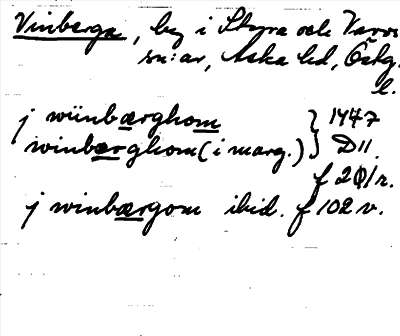 Vinberga, by i Styra och Varv
sn:ar, Aska hd, Östg.
l.
j wiinbærghom } 1447
winbærghom (i marg.) D 11
f 201 r.
j winbærgom ibid. f 102 v.